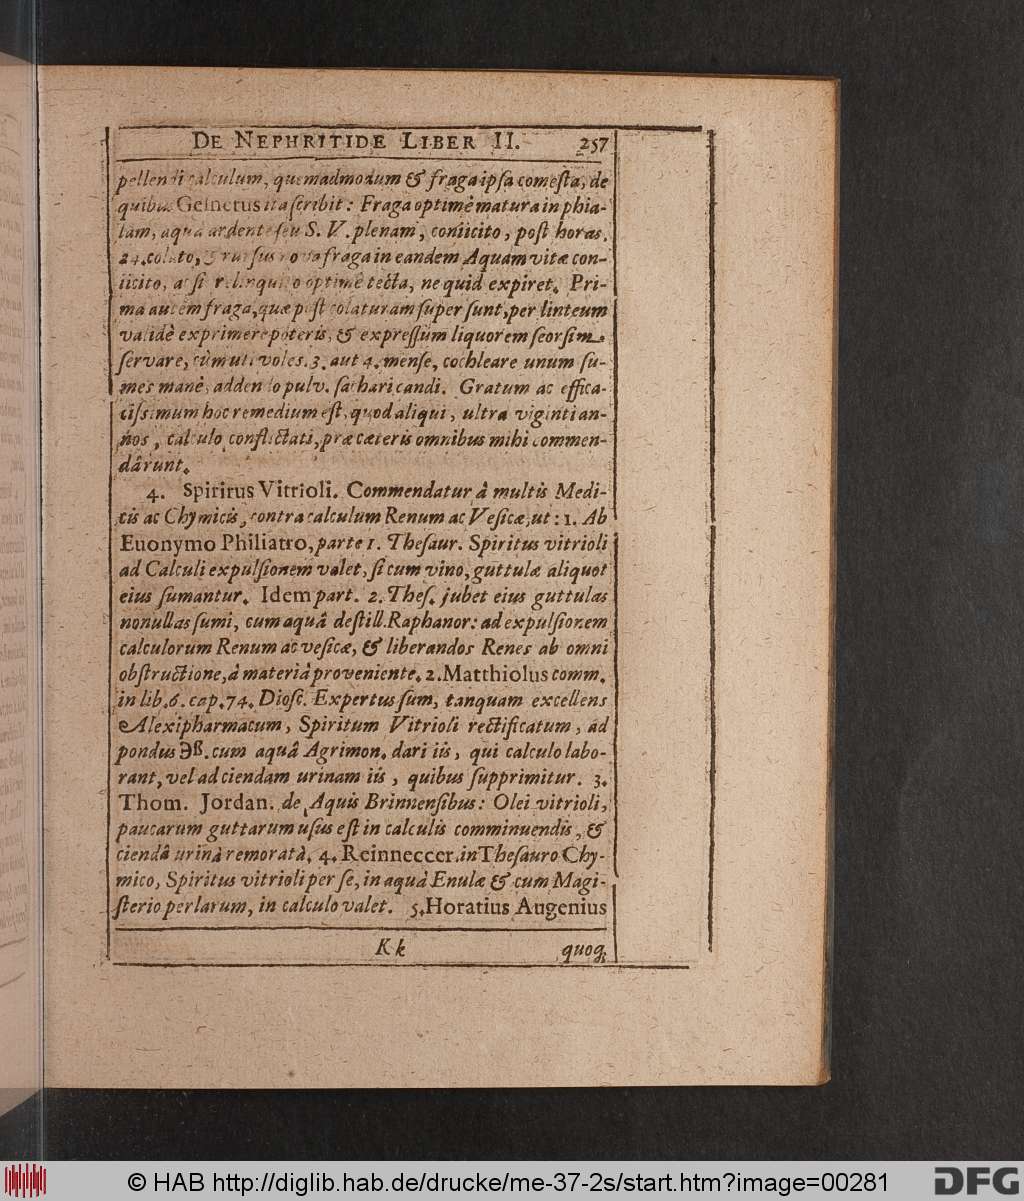 DE NEPHRITIDE LIBER II. 257
pellendi calculum, quemadmodum & fraga ipſa comeſta, de
quibus Geſnerus ita ſcribit: Fraga optimè matura in phia-
lam, aquâ ardente ſeu S. V. plenam, coniicito, poſt horas.
24. colato, & rurſus nova fraga in eandem Aquam vitæ con-
iicito, ac ſi relinquito optimè tecta, ne quid expiret. Pri-
ma autem fraga, quæ poſt colaturam ſuperſunt, per linteum
validè exprimere poteris, & expreſſum liquorem ſeorſim
ſervare, cùm uti voles. 3. aut 4. menſe, cochleare unum ſu-
mes manè, addendo pulv. ſachari candi. Gratum ac effica-
ciſsimum hoc remedium eſt, quod aliqui, ultra viginti an-
nos, calculo conflictati, præ cæteris omnibus mihi commen-
dârunt.
4. Spirirus Vitrioli. Commendatur â multis Medi-
cis ac Chymicis, contra calculum Renum ac Veſicæ, ut: 1. Ab
Euonymo Philiatro, parte 1. Theſaur. Spiritus vitrioli
ad Calculi expulſionem valet, ſi cum vino, guttulæ aliquot
eius ſumantur. Idem part. 2. Theſ. jubet eius guttulas
nonullas ſumi, cum aquâ deſtill. Raphanor: ad expulſionem
calculorum Renum ac veſicæ, & liberandos Renes ab omni
obſtructione, â materiâ proveniente. 2. Matthiolus comm.
in lib. 6. cap. 74. Dioſc. Expertus ſum, tanquam excellens
Alexipharmacum, Spiritum Vitrioli rectificatum, ad
pondus ℈ß. cum aquâ Agrimon. dari iis, qui calculo labo-
rant, vel ad ciendam urinam iis, quibus ſupprimitur. 3.
Thom. Jordan. de Aquis Brinnenſibus: Olei vitrioli,
paucarum guttarum uſus eſt in calculis comminuendis, &
ciendâ urinà remoratâ. 4. Reinneccer. in Theſauro Chy-
mico, Spiritus vitrioli per ſe, in aquâ Enulæ & cum Magi-
ſterio perlarum, in calculo valet. 5. Horatius Augenius
Kk quoq;
© HAB http://diglib.hab.de/drucke/me-37-2s/start.htm?image=00281 DFG